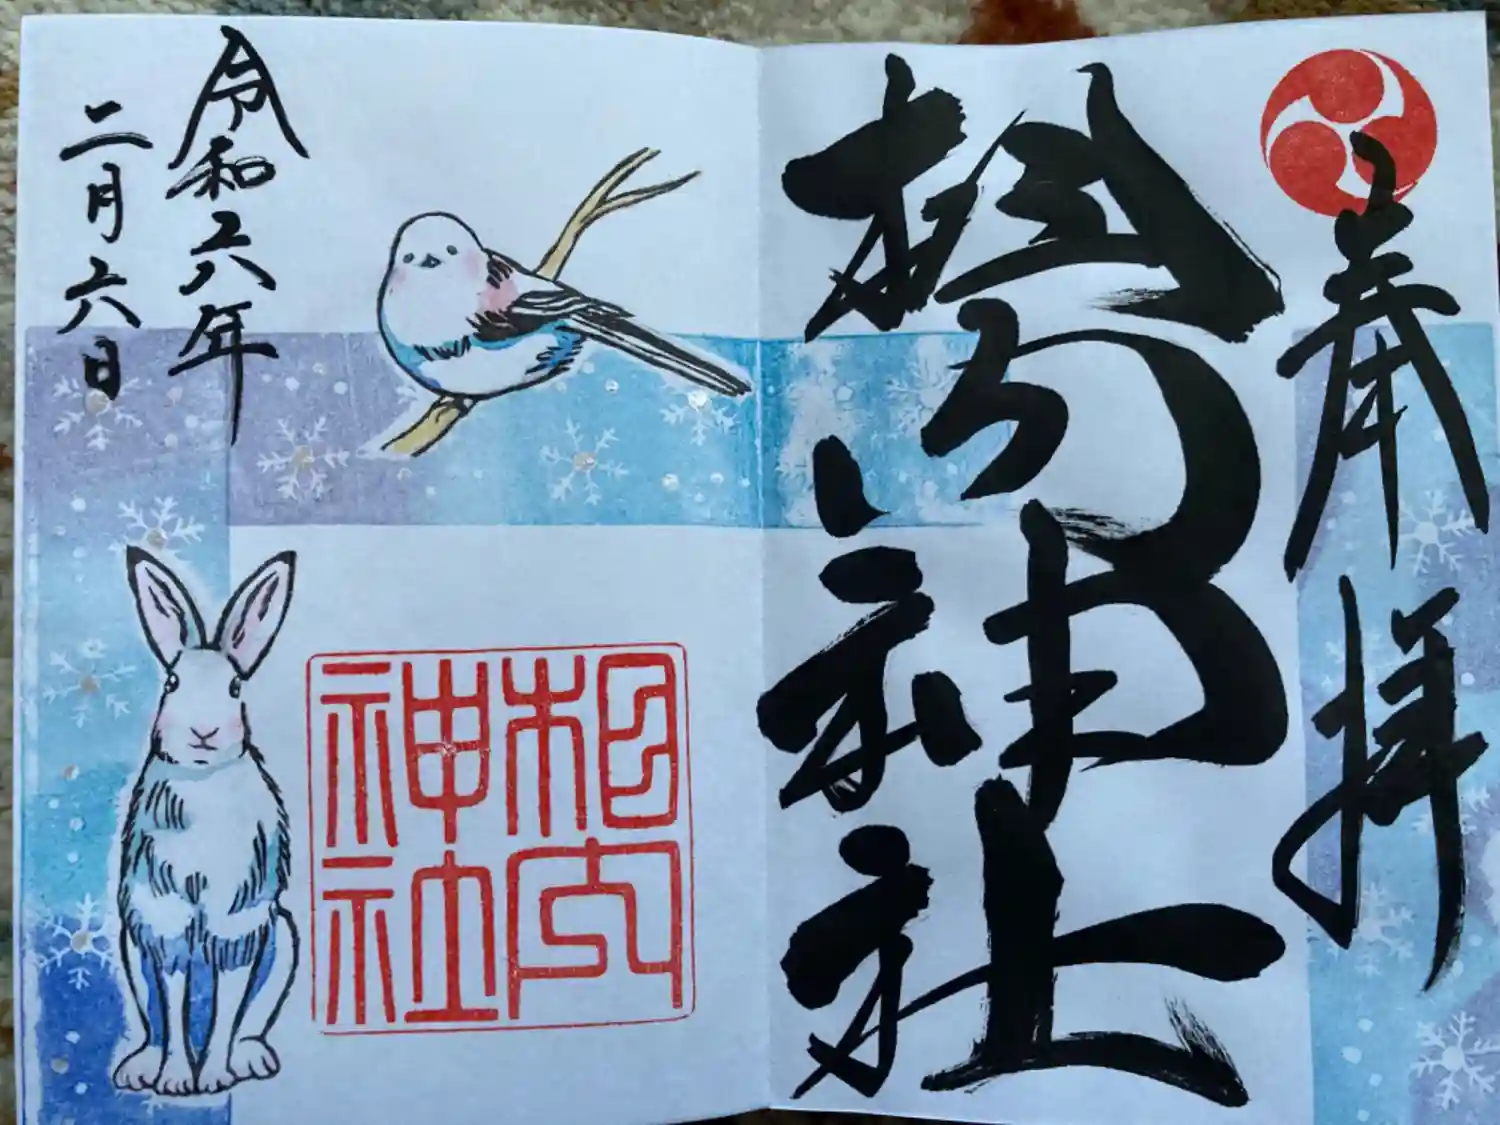 奉拝
相内神社
相内
神社
令和六年
二月六日